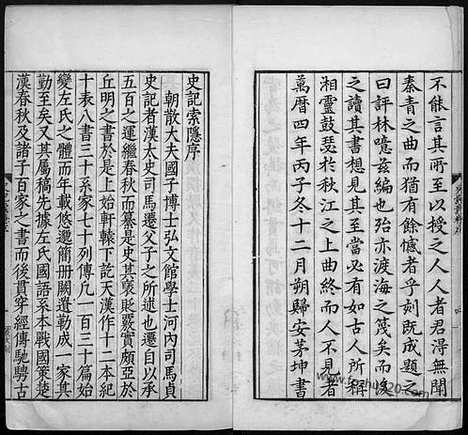 不能言其所至以授之人人者君得無聞
秦青之曲而猶有餘憾者乎刻既成題之
曰評林噫茲編也殆亦渡海之筏矣而後
之讀其書想見其至也亦有如古人所稱
湘靈鼓瑟於秋江之上曲終而人不見者
萬曆四年丙子冬十二月朔歸安茅坤書
史記索隱序
朝散大夫國子博士弘文館學士河內司馬貞
史記者漢太史司馬遷父子之所述也遷自以承
五百之運繼春秋而纂是史其褒貶覈實頗亞於
丘明之書於是上始軒轅下訖天漢作十二本紀
十表八書三十系家七十列傳凡一百三十篇始
變左氏之體而年載悠邈簡冊闕遺勒成一家其
勤至矣又其屬稿先據左氏國語系本戰國策楚
漢春秋及諸子百家之書而後貫穿經傳馳騁古